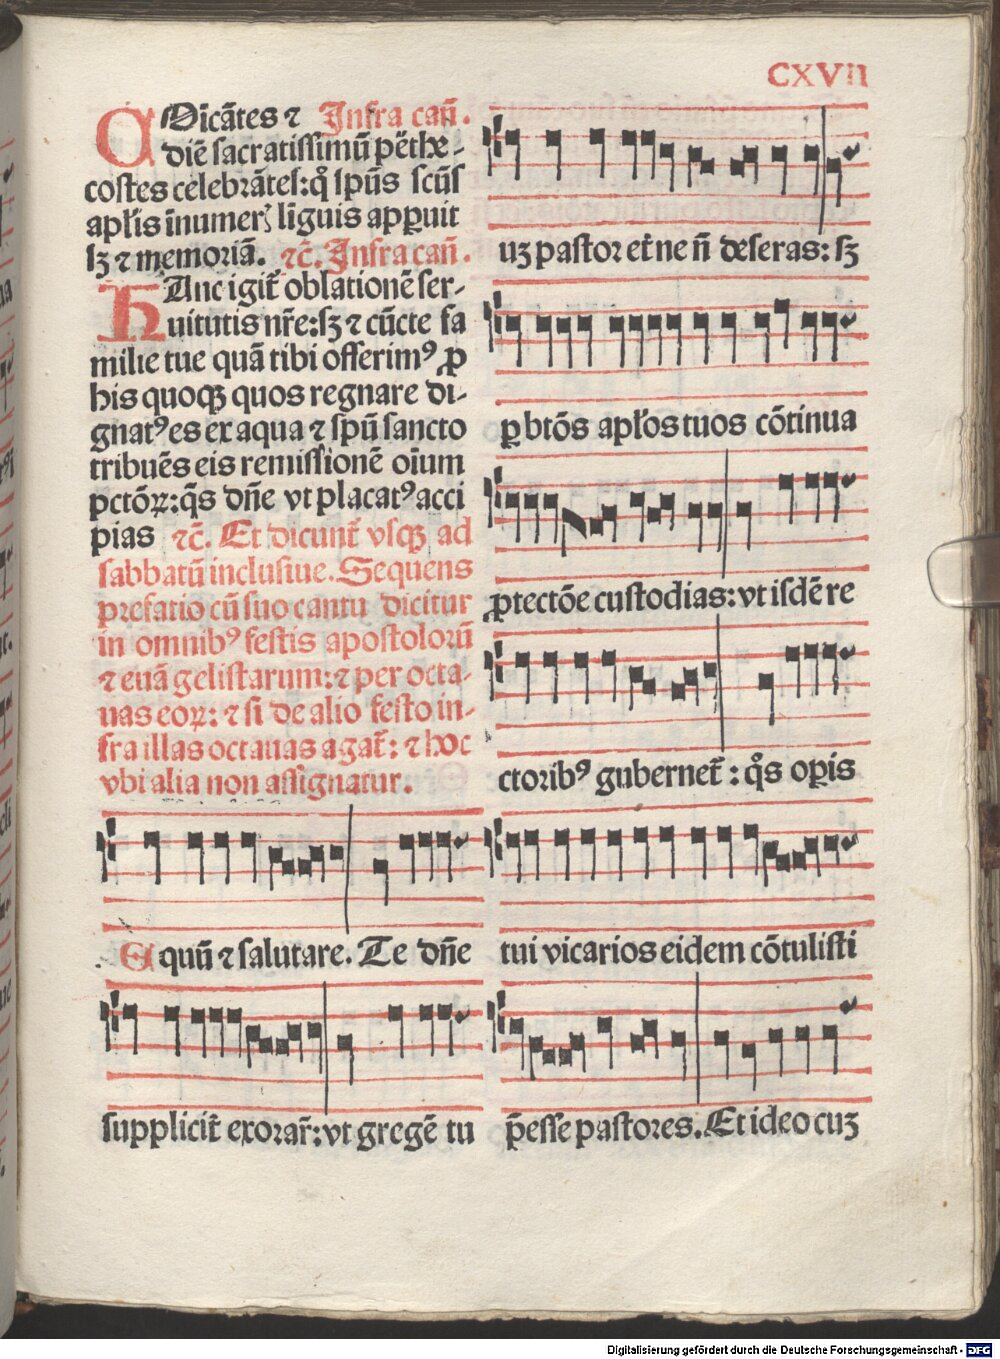 CXVII
CÕmicãtes ⁊ Infra cañ.
diẽ sacratissimũ pẽthe-
costes celebrãtes: q̊ spũs scũs
apl̃is ĩnumerꝭ liguis apꝑuit
sꝫ ⁊ memoriã. ⁊c̃. Infra cañ.
HAnc igit̃ oblationẽ ser-
uitutis nr̃e: sꝫ ⁊ cũcte fa
milie tue quã tibi offerimꝰ ꝓ
his quoqꝫ quos regnare di-
gnatꝰ es ex aqua ⁊ spũ sancto
tribuẽs eis remissionẽ oĩum
pctõꝝ: q̃s dñe vt placatꝰ acci
pias ⁊c̃. Et dicunt̃ vsqꝫ ad
sabbatũ inclusiue. Sequens
prefatio cũ suo cantu dicitur
in omnibꝰ festis apostolorũ
⁊ euãgelistarum: ⁊ per octa-
uas eoꝝ: ⁊ si de alio festo in-
fra illas octauas agat̃: ⁊ hoc
vbi alia non assignatur.
Equũ ⁊ salutare. Te dñe
suppliciť exorar̃: vt gregẽ tu
uꝫ pastor et̃ne ñ deseras: sꝫ
ꝑ btõs apl̃os tuos cõtinua
ꝓtectõe custodias: vt isdẽ re
ctoribꝰ gubernet̃: q̊s oꝑis
tui vicarios eidem cõtulisti
p̃esse pastores. Et ideo cuꝫ
Digitalisierung gefördert durch die Deutsche Forschungsgemeinschaft - DFG